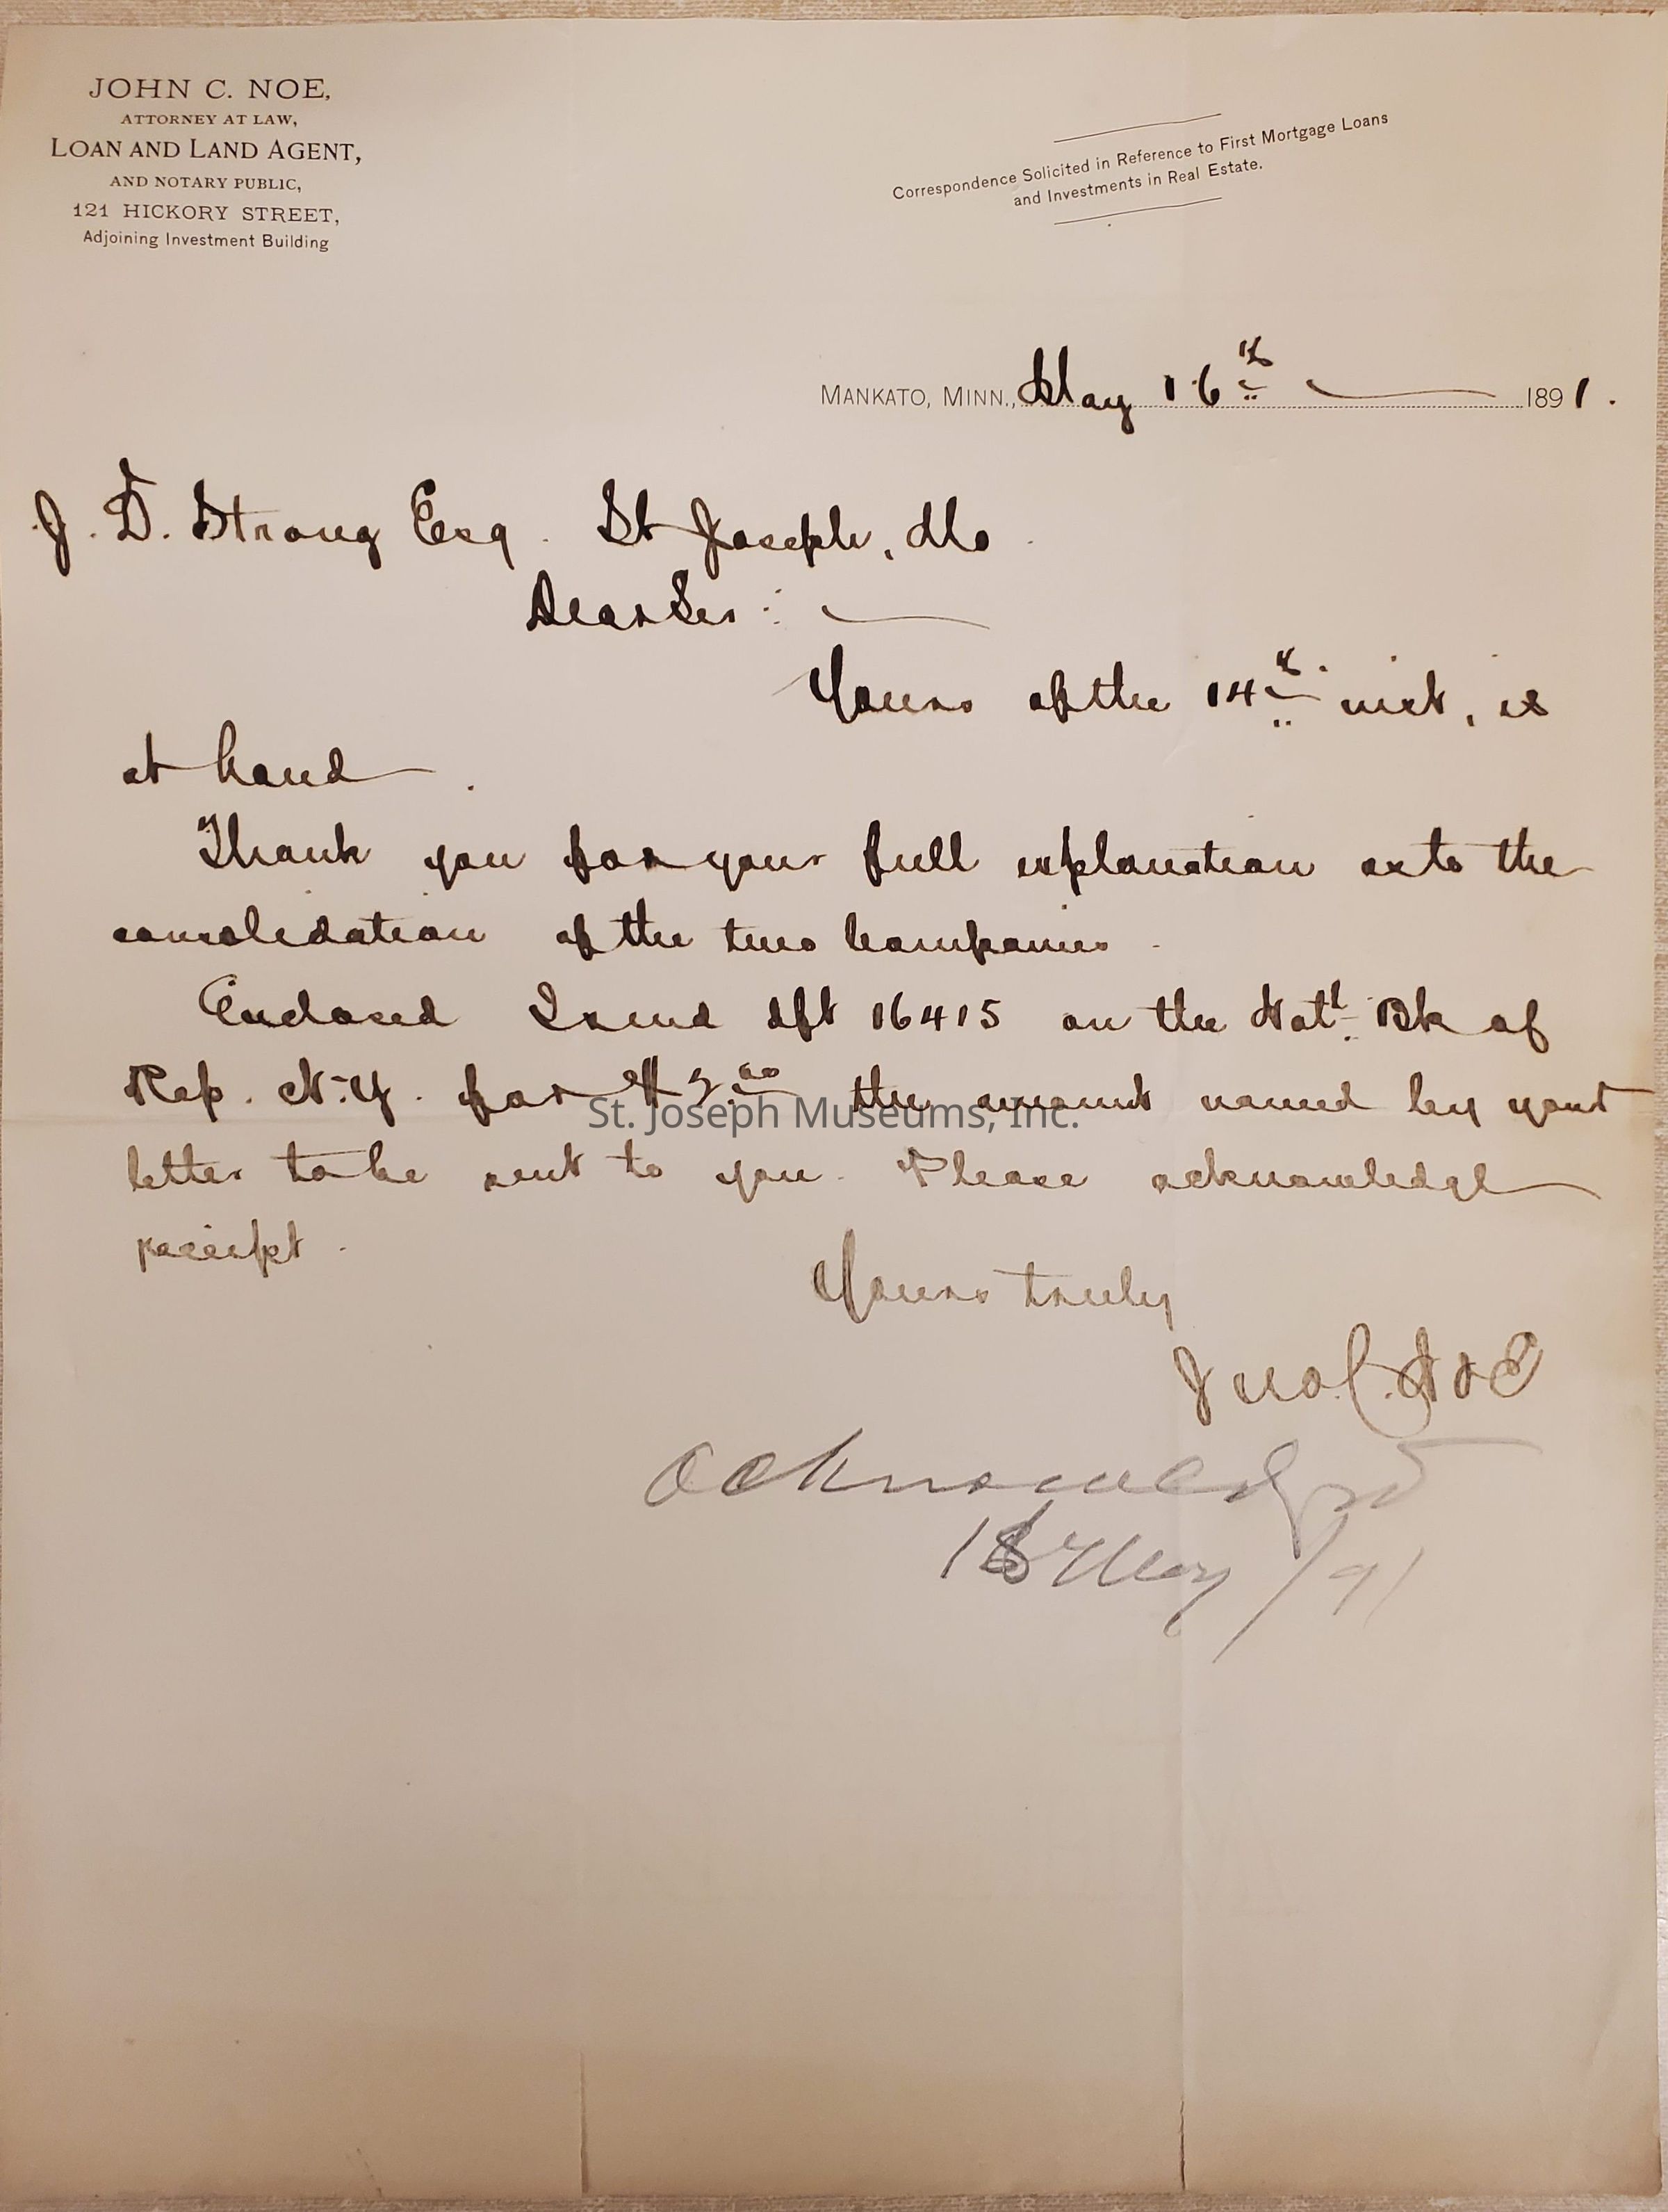 JOHN C. NOE,
ATTORNEY AT LAW,
LOAN AND LAND AGENT,
AND NOTARY PUBLIC,
121 HICKORY STREET,
Adjoining Investment Building
Correspondence Solicited in Reference to First Mortgage Loans
and Investments in Real Estate.
MANKATO, MINN., May 16th 1891.
J. D. Strong Esq. St Joseph, Mo.
Dear Sir:
Yours of the 14th inst, is
at hand.
Thank you for your full explanation as to the
consolidation of the two Companies.
Enclosed I send dft 16415 on the Natl Bk of
Rep. N.Y. for the amount named by your
letter to be sent to you. Please acknowledge
receipt.
Yours truly
Jno. C. Noe
acknowledged
18 May /91
St. Joseph Museums, Inc.